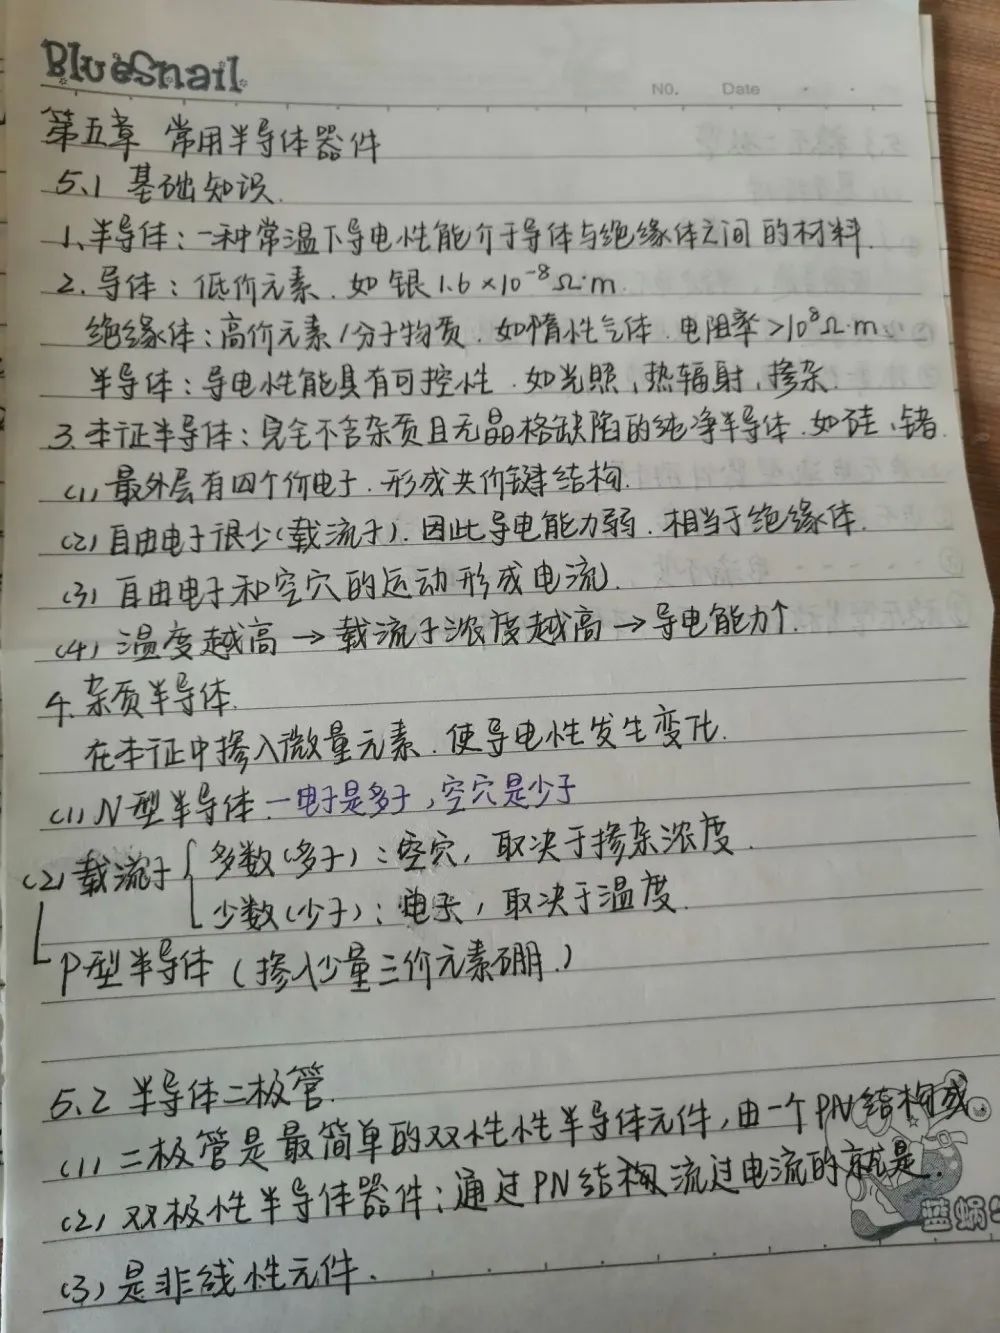 BlueSnail
No. Date
第五章 常用半导体器件
5.1 基础知识.
1.半导体:一种常温下导电性能介于导体与绝缘体之间的材料.
2.导体:低价元素.如银1.6×10⁻⁸Ω·m.
绝缘体:高价元素/分子物质.如惰性气体.电阻率>10⁸Ω·m.
半导体:导电性能具有可控性.如光照,热辐射,掺杂.
3.本征半导体:完全不含杂质且无晶格缺陷的纯净半导体.如硅、锗.
(1)最外层有四个价电子.形成共价键结构.
(2)自由电子很少(载流子).因此导电能力弱.相当于绝缘体.
(3)自由电子和空穴的运动形成电流.
(4)温度越高→载流子浓度越高→导电能力↑.
4.杂质半导体.
在本征中掺入微量元素.使导电性发生变化.
(1)N型半导体-电子是多子,空穴是少子
(2)载流子{多数(多子):空穴,取决于掺杂浓度.
少数(少子):电子,取决于温度.
P型半导体(掺入少量三价元素硼.)
5.2 半导体二极管.
(1)二极管是最简单的双极性半导体元件,由一个PN结构成.
(2)双极性半导体器件:通过PN结构流过电流的就是.
(3)是非线性元件.
蓝蜗